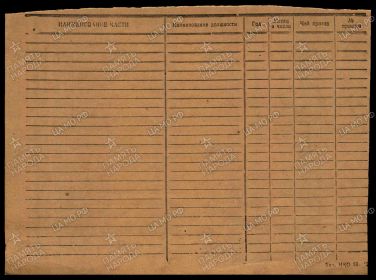 НАИМЕНОВАНИЕ ЧАСТИ Наименование должности Год Месяц и число Чей приказ № приказа
ЦАМО.РФ
ПАМЯТЬ НАРОДА